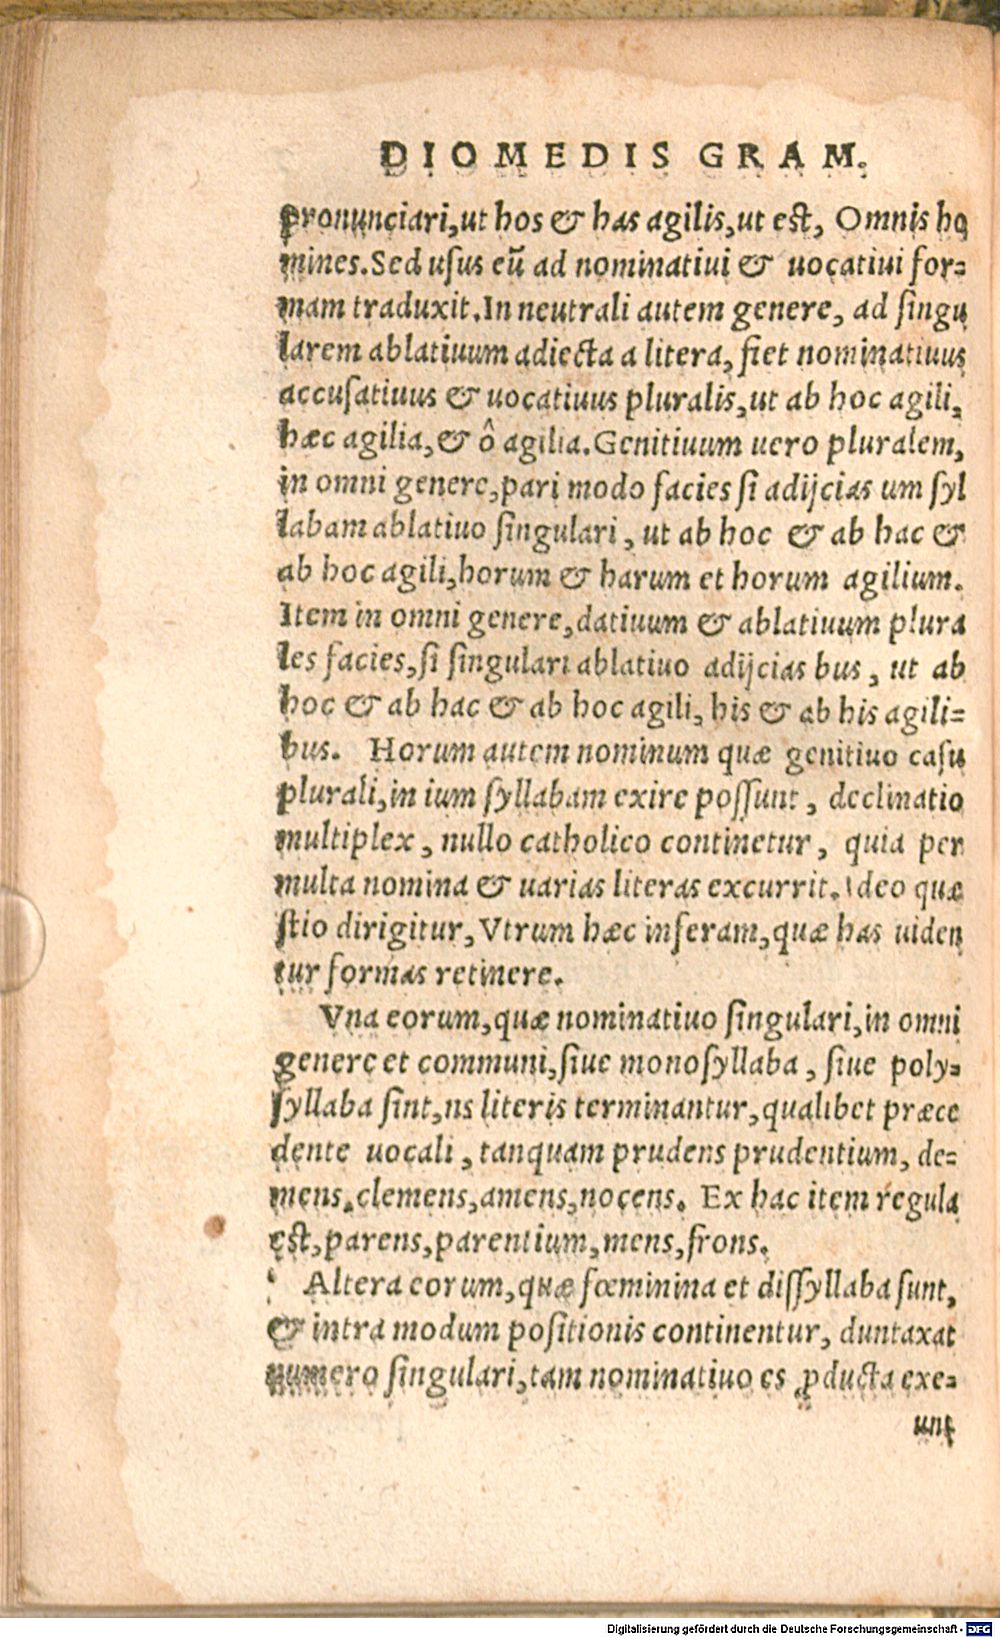 DIOMEDIS GRAM.
pronunciari, ut hos & has agilis, ut est, Omnis ho
mines. Sed usus eũ ad nominatiui & uocatiui for=
mam traduxit. In neutrali autem genere, ad singu
larem ablatiuum adiecta a litera, fiet nominatiuus
accusatiuus & uocatiuus pluralis, ut ab hoc agili,
hæc agilia, & ô agilia. Genitiuum uero pluralem,
in omni genere, pari modo facies si adijcias um syl
labam ablatiuo singulari, ut ab hoc & ab hac &
ab hoc agili, horum & harum et horum agilium.
Item in omni genere, datiuum & ablatiuum plura
les facies, si singulari ablatiuo adijcias bus, ut ab
hoc & ab hac & ab hoc agili, his & ab his agili=
bus. Horum autem nominum quæ genitiuo casu
plurali, in ium syllabam exire possunt, declinatio
multiplex, nullo catholico continetur, quia per
multa nomina & uarias literas excurrit. Ideo quæ
stio dirigitur, Vtrum hæc inseram, quæ has uiden
tur formas retinere.
Vna eorum, quæ nominatiuo singulari, in omni
genere et communi, siue monosyllaba, siue poly=
syllaba sint, ns literis terminantur, qualibet præce
dente uocali, tanquam prudens prudentium, de=
mens, clemens, amens, nocens. Ex hac item regula
est, parens, parentium, mens, frons.
Altera eorum, quæ fœminina et dissyllaba sunt,
& intra modum positionis continentur, duntaxat
numero singulari, tam nominatiuo es ꝓducta exe=
unt
Digitalisierung gefördert durch die Deutsche Forschungsgemeinschaft - DFG